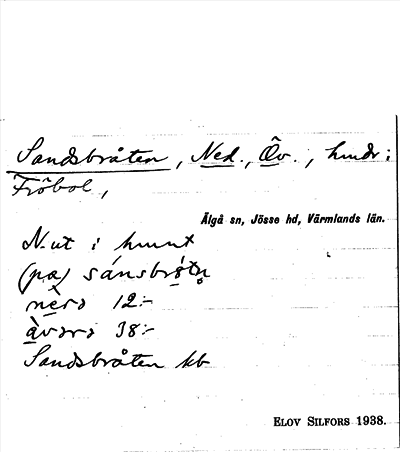 Sandsbråten, Ned., Öv., hmdr i
Fröbol,
Älgå sn, Jösse hd, Värmlands län.
N. ut i hmnt
(pa) sánsbrǫ́tn̥
nèrɔ 12:-
àvərɔ 38:-
Sandsbråten kb
ELOV SILFORS 1938.